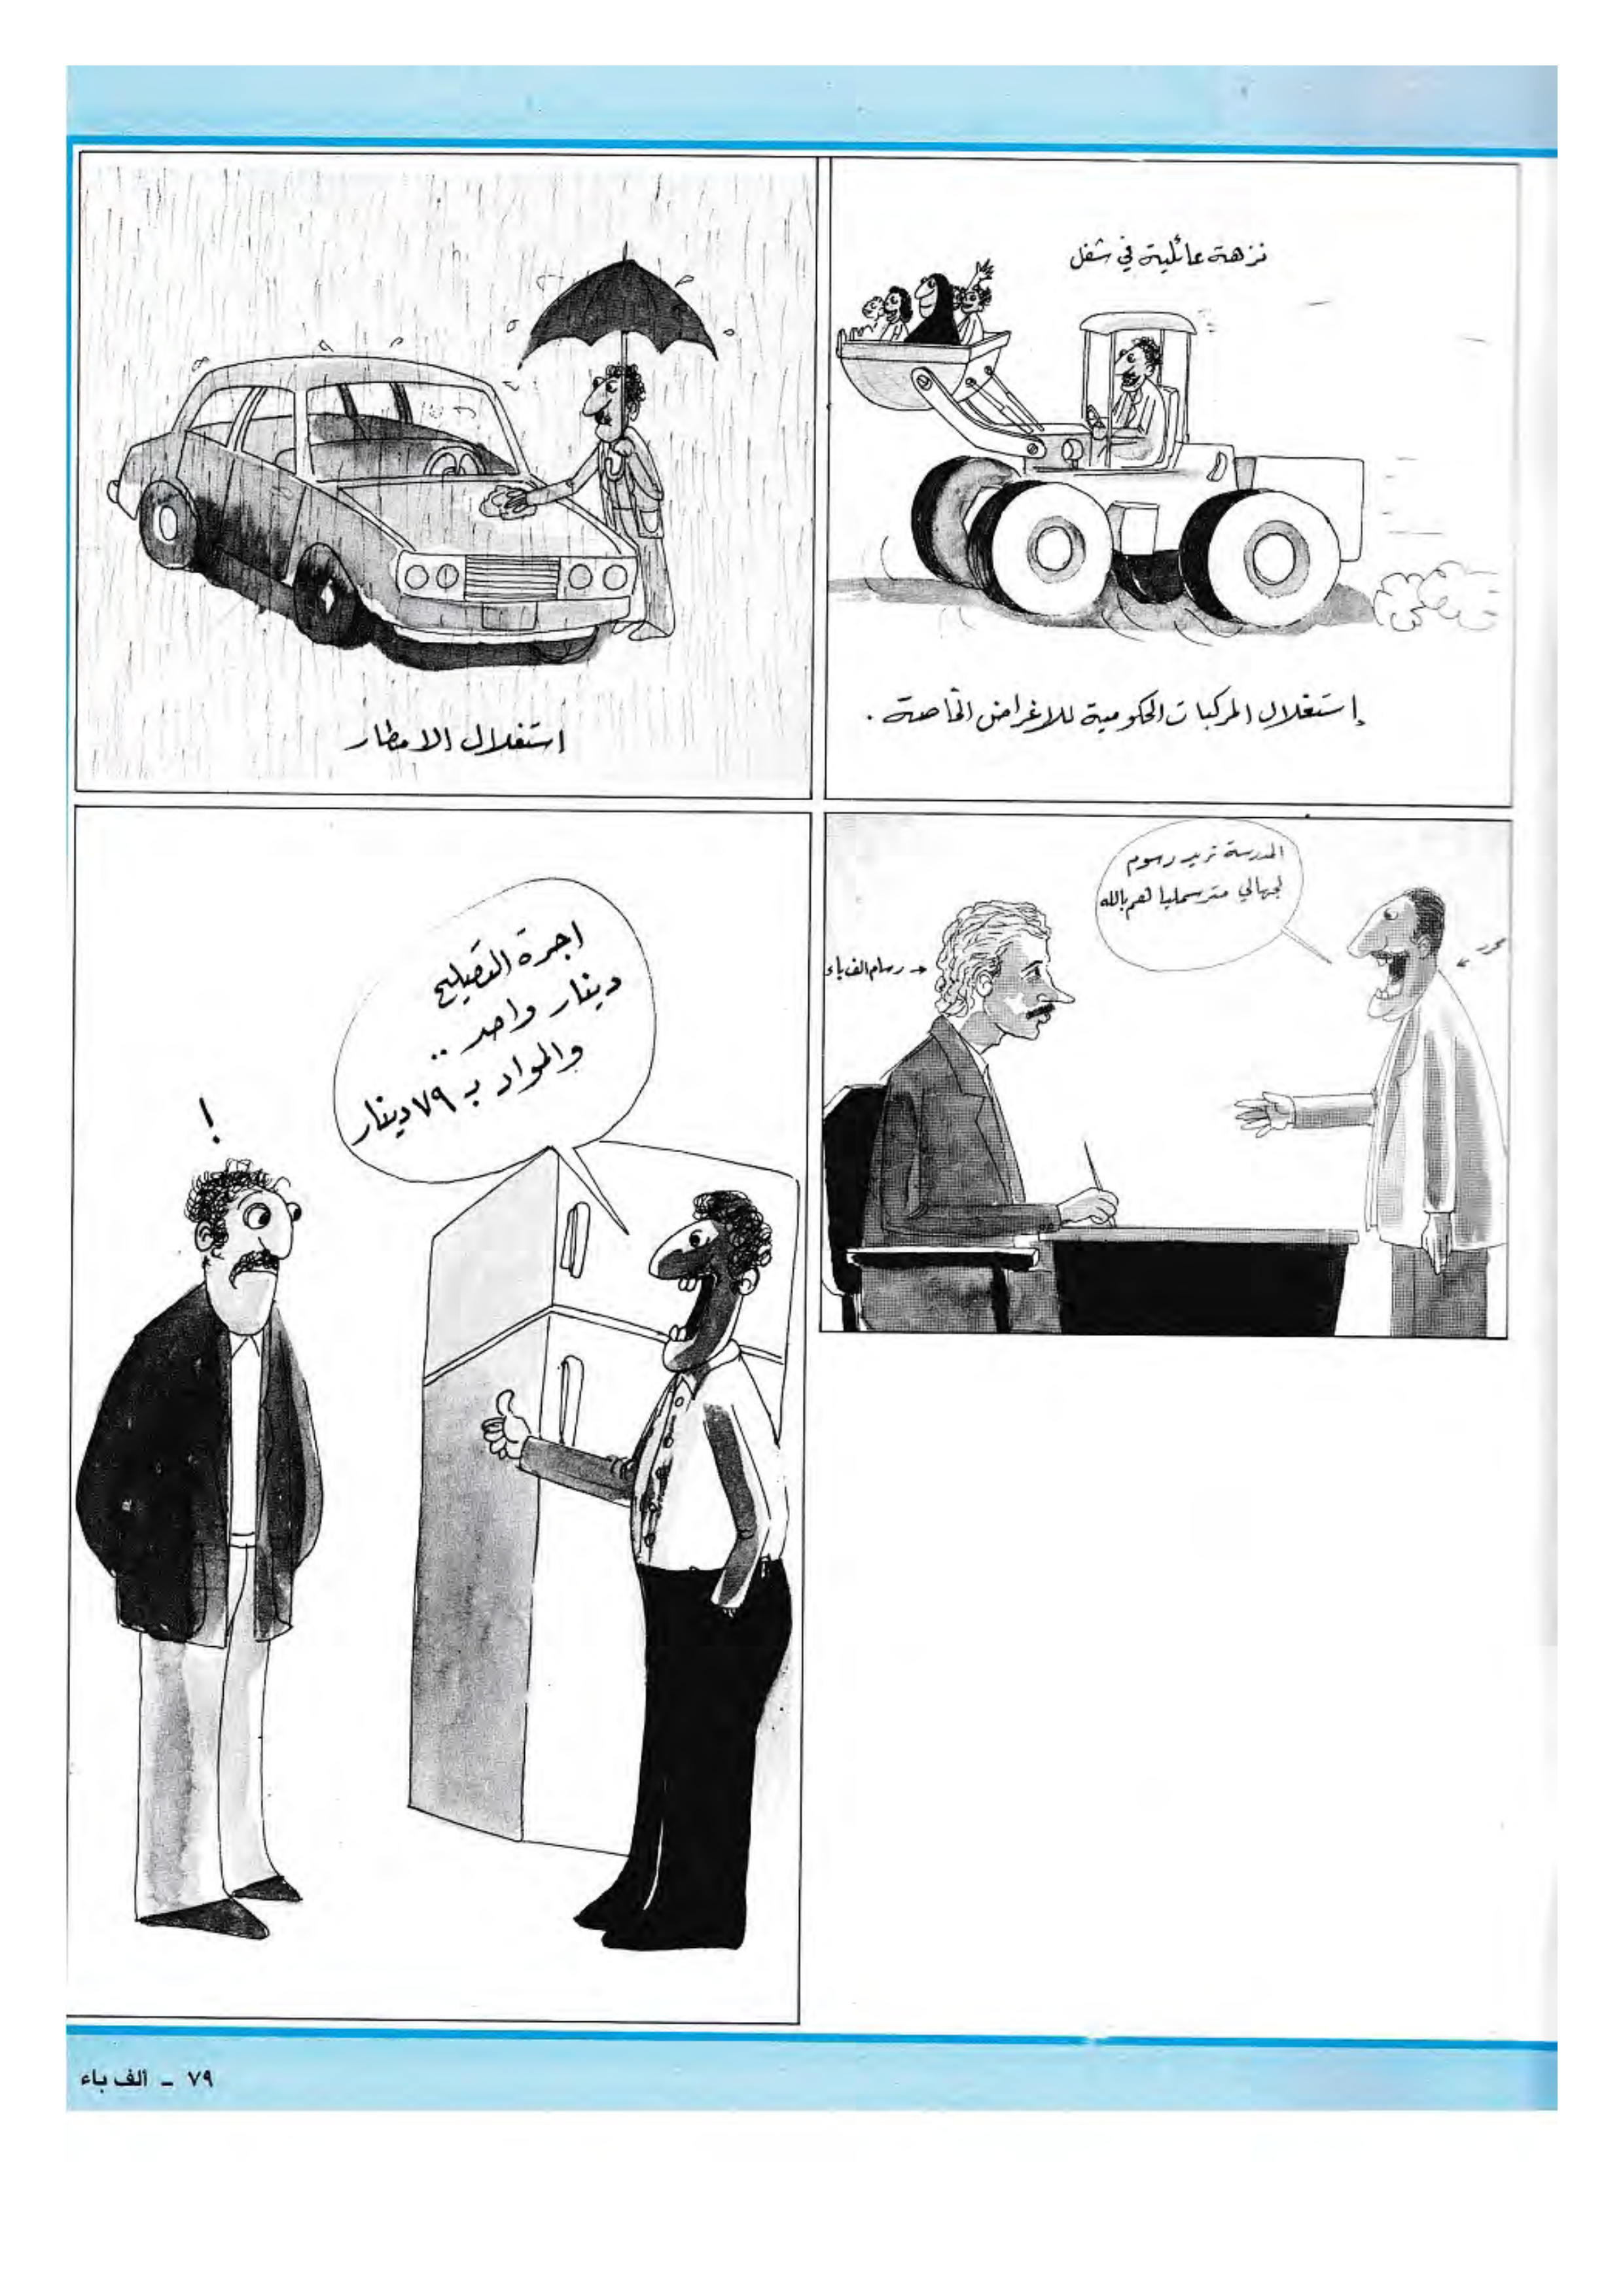 نزهة عائلية في شفل
إستغلال المركبات الحكومية للاغراض الخاصة .
استغلال الامطار
المدرسة تريد رسوم
لجهالي مترسملياهم بالله
محرر
رسام الف باء
اجرة التصليح
دينار واحد ..
والمواد ب ٧٩ دينار
!
٧٩ - الف باء